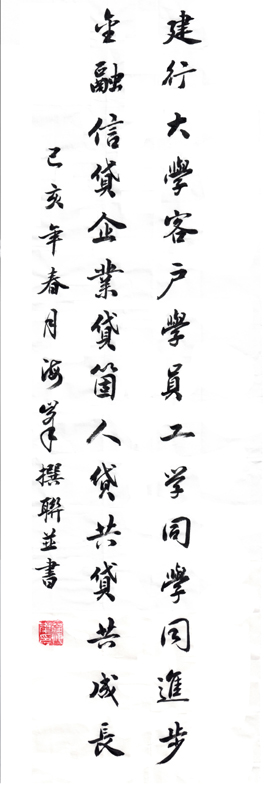 建行大學客户學員工学同學同進步
金融信貸企業貸箇人貸共貸共成長
己亥年春月海峯撰聯並書